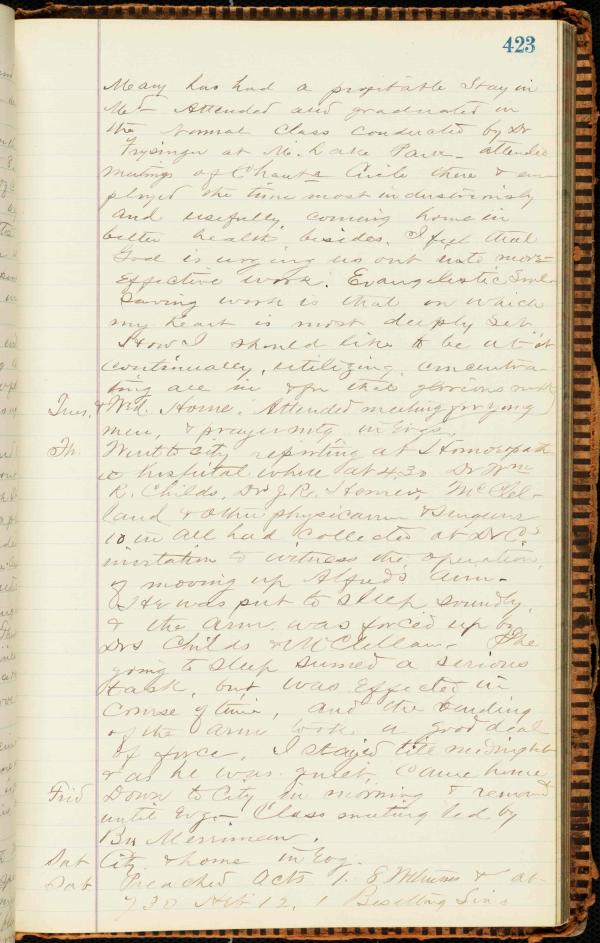 423
Mary has had a profitable Stay in
Md - Attended and graduated in
the Normal Class conducted by Dr
Frysinger at Mt. Lake Park - attended
meetings of Chaut- Circle there & em
ployed the time most industriously
and usefully, coming home in
better health besides. I feel that
God is urging us out into more
Effective work. Evangelistic Soul
Saving work is that on which
my heart is most deeply Set.
How I should like to be at it
continually, utilizing, concentra-
ting all in & for this glorious work
Tues. & Wed. Home. Attended meeting for young
men, & prayer mtg in Evg.
Th. Went to city reporting at Homoeopath
ic hospital where at 4.30 Dr Wm
R. Childs, Drs J.R. Homer, McClel-
land & other physicians & Surgeons
10 in all had collected at Dr C's
invitation to witness the operation
of moving up Alfred's arm -
He was put to sleep soundly,
& the arm was forced up by
Drs Childs & McClellan - The
going to Sleep Seemed a serious
task, but was Effected in
Course of time, and the bending
of the arm took a good deal
of force. I stayed till midnight
& as he was quiet, Came home
Frid Down to City in morning & remain
until Evg - Class meeting led by
Bro Merriman.
Sat City & home in Evg.
Sab Preached Acts 1. 8 & at
7 30 Heb 12. 1 Besetting Sins